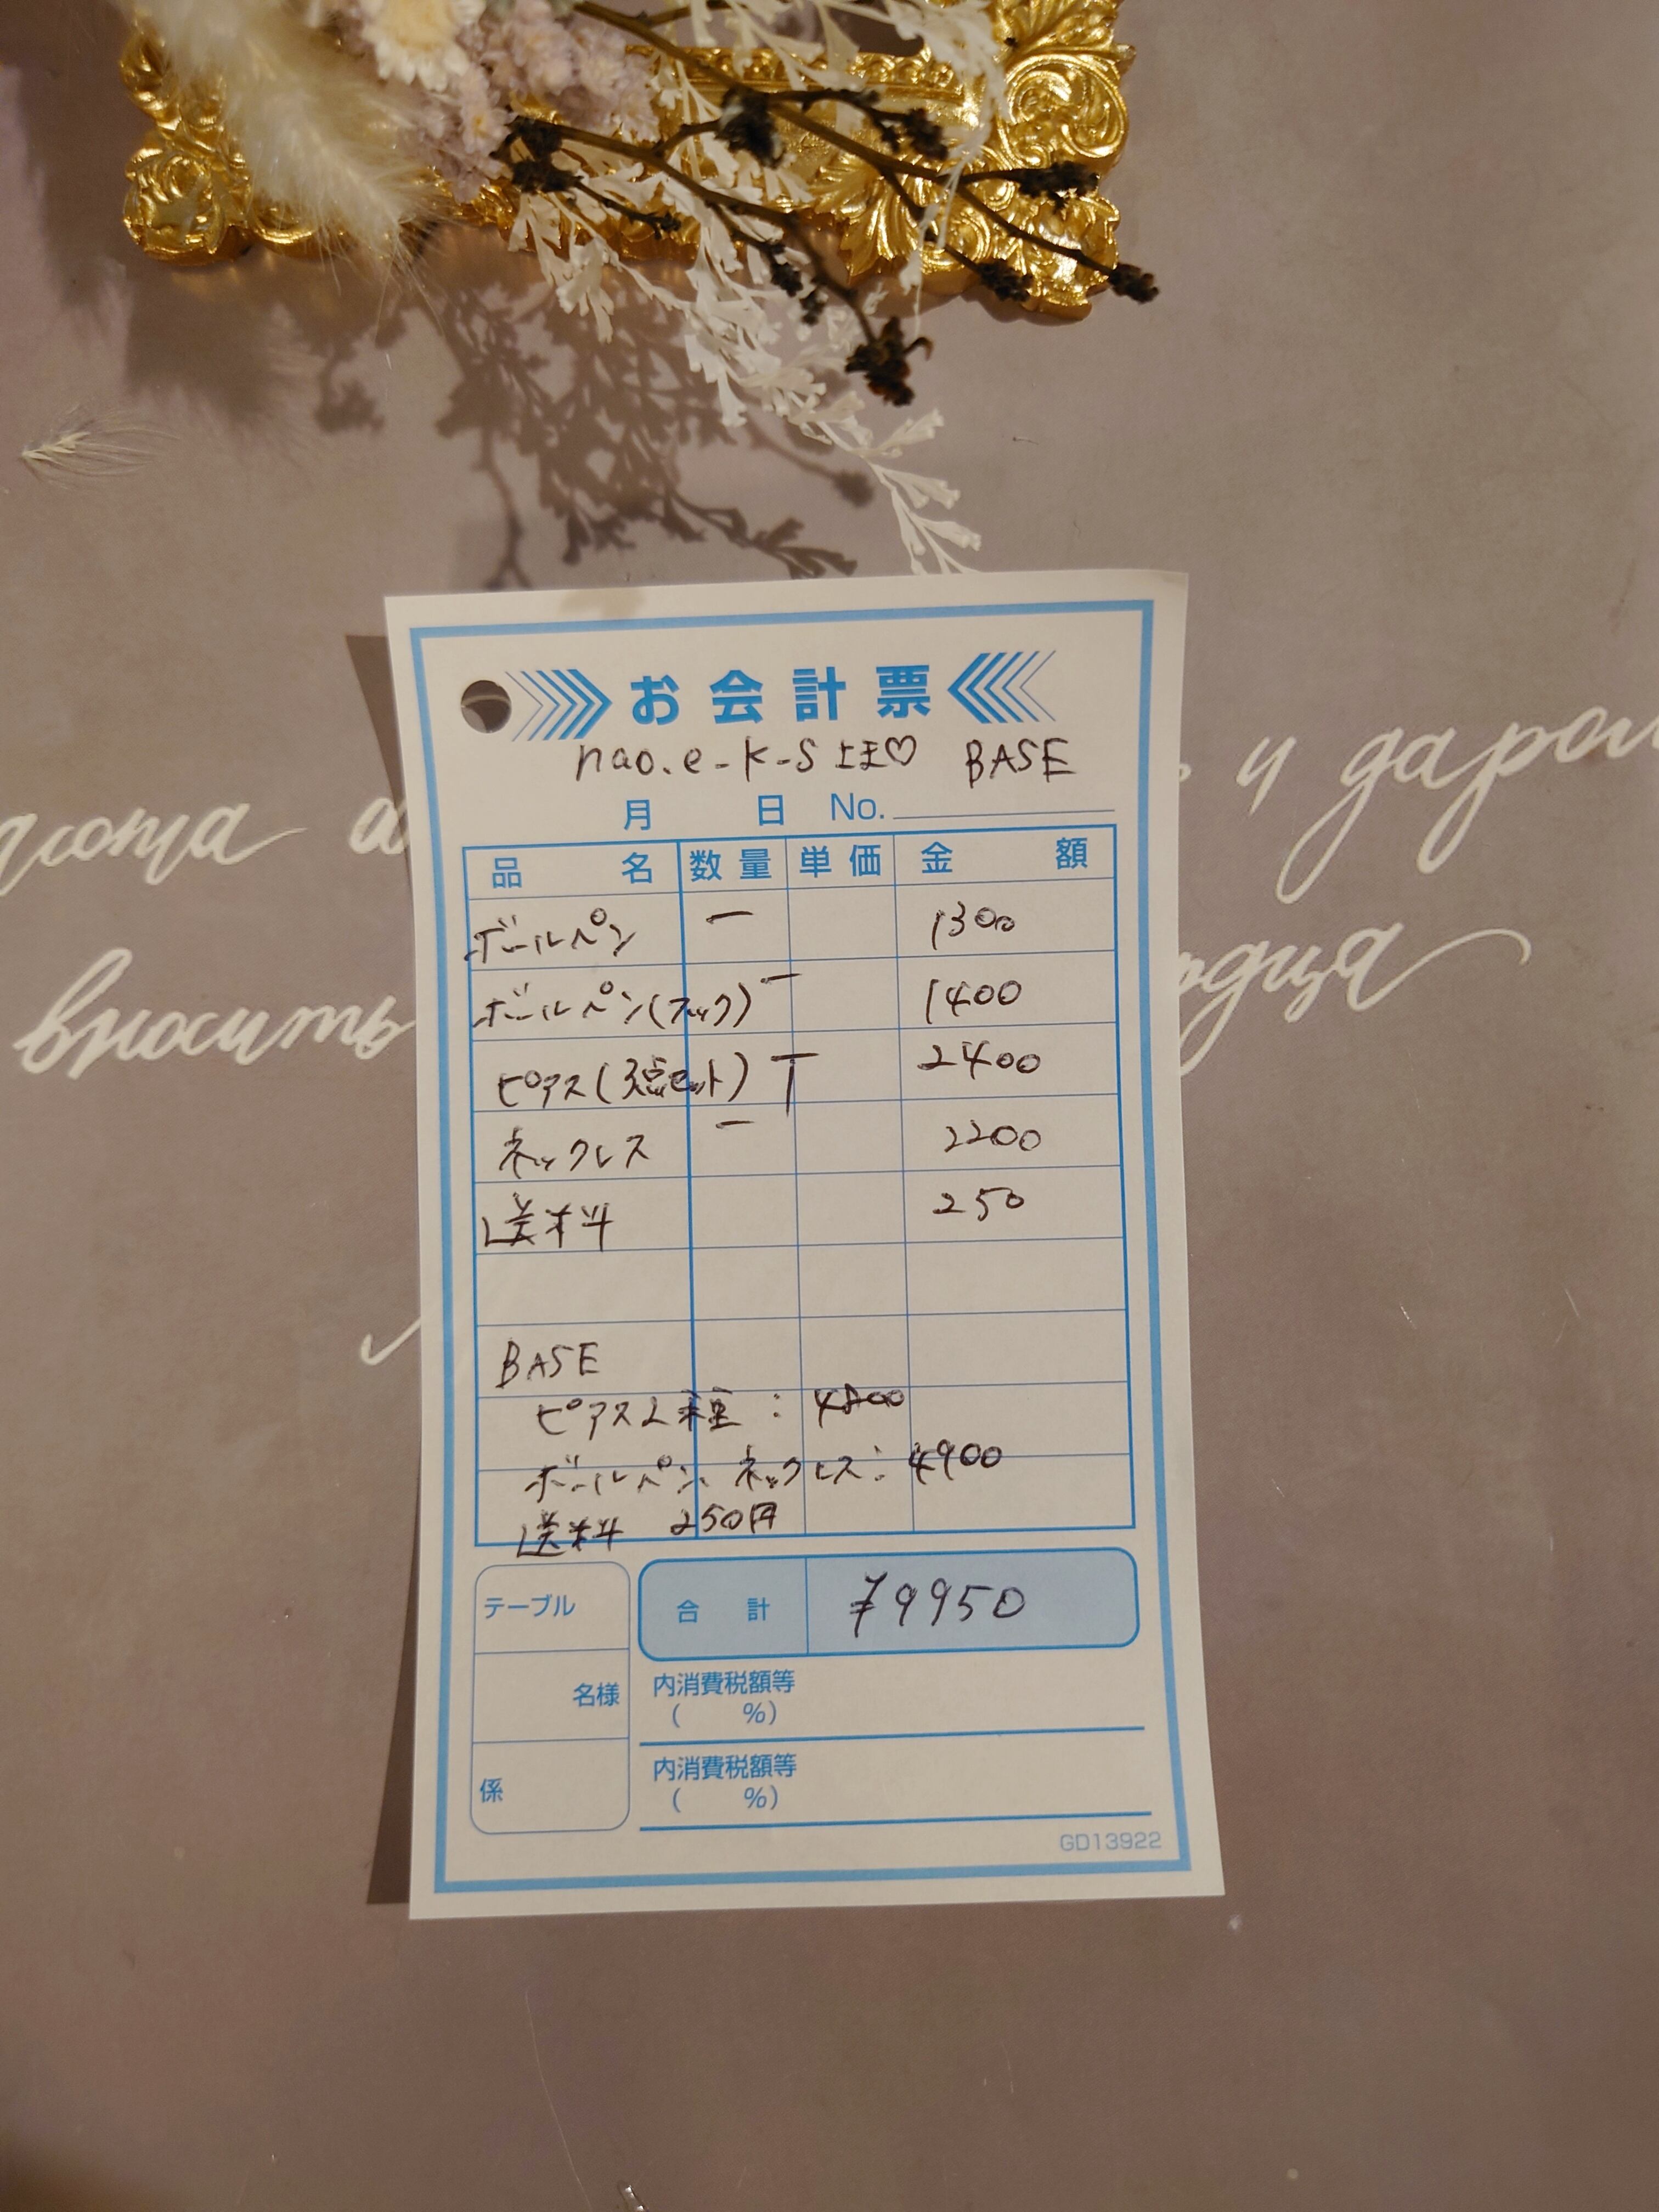 お会計票
nao.e-k-s 様♡ BASE
月 日 No.
品名 数量 単価 金額
ボールペン 一 1300
ボールペン(フック) 一 1400
ピアス(3点セット) T 2400
ネックレス 一 2200
送料 250
BASE
ピアス2種: 4800
ボールペン、ネックレス: 4900
送料 250円
テーブル
合計 ¥9950
名様
内消費税額等
( %)
係
内消費税額等
( %)
GD13922
и
вносить